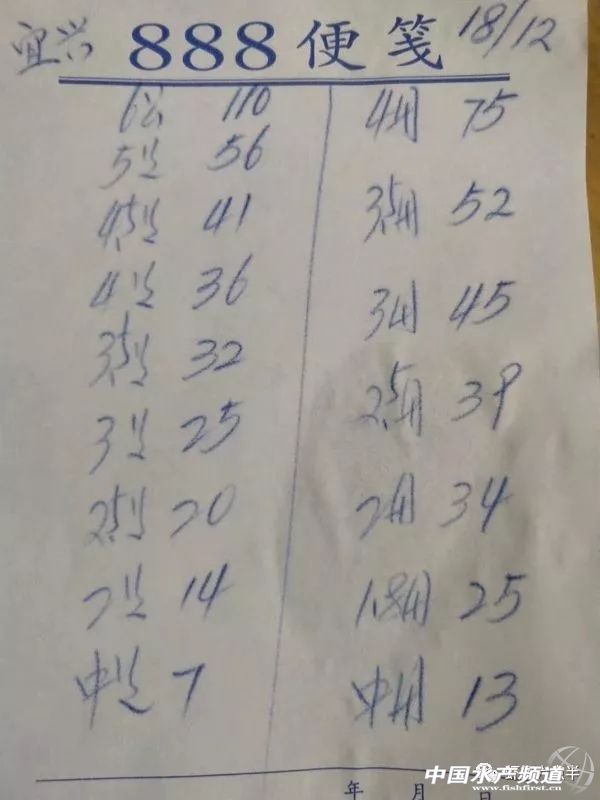 宜兴 888便笺 18/12
6公 110
5公 56
4.5公 41
4公 36
3.5公 32
3公 25
2.5公 20
2公 14
中公 7
4母 75
3.5母 52
3母 45
2.5母 39
2母 34
1.8母 25
中母 13
年 月 日
中国水产频道
www.fishfirst.cn